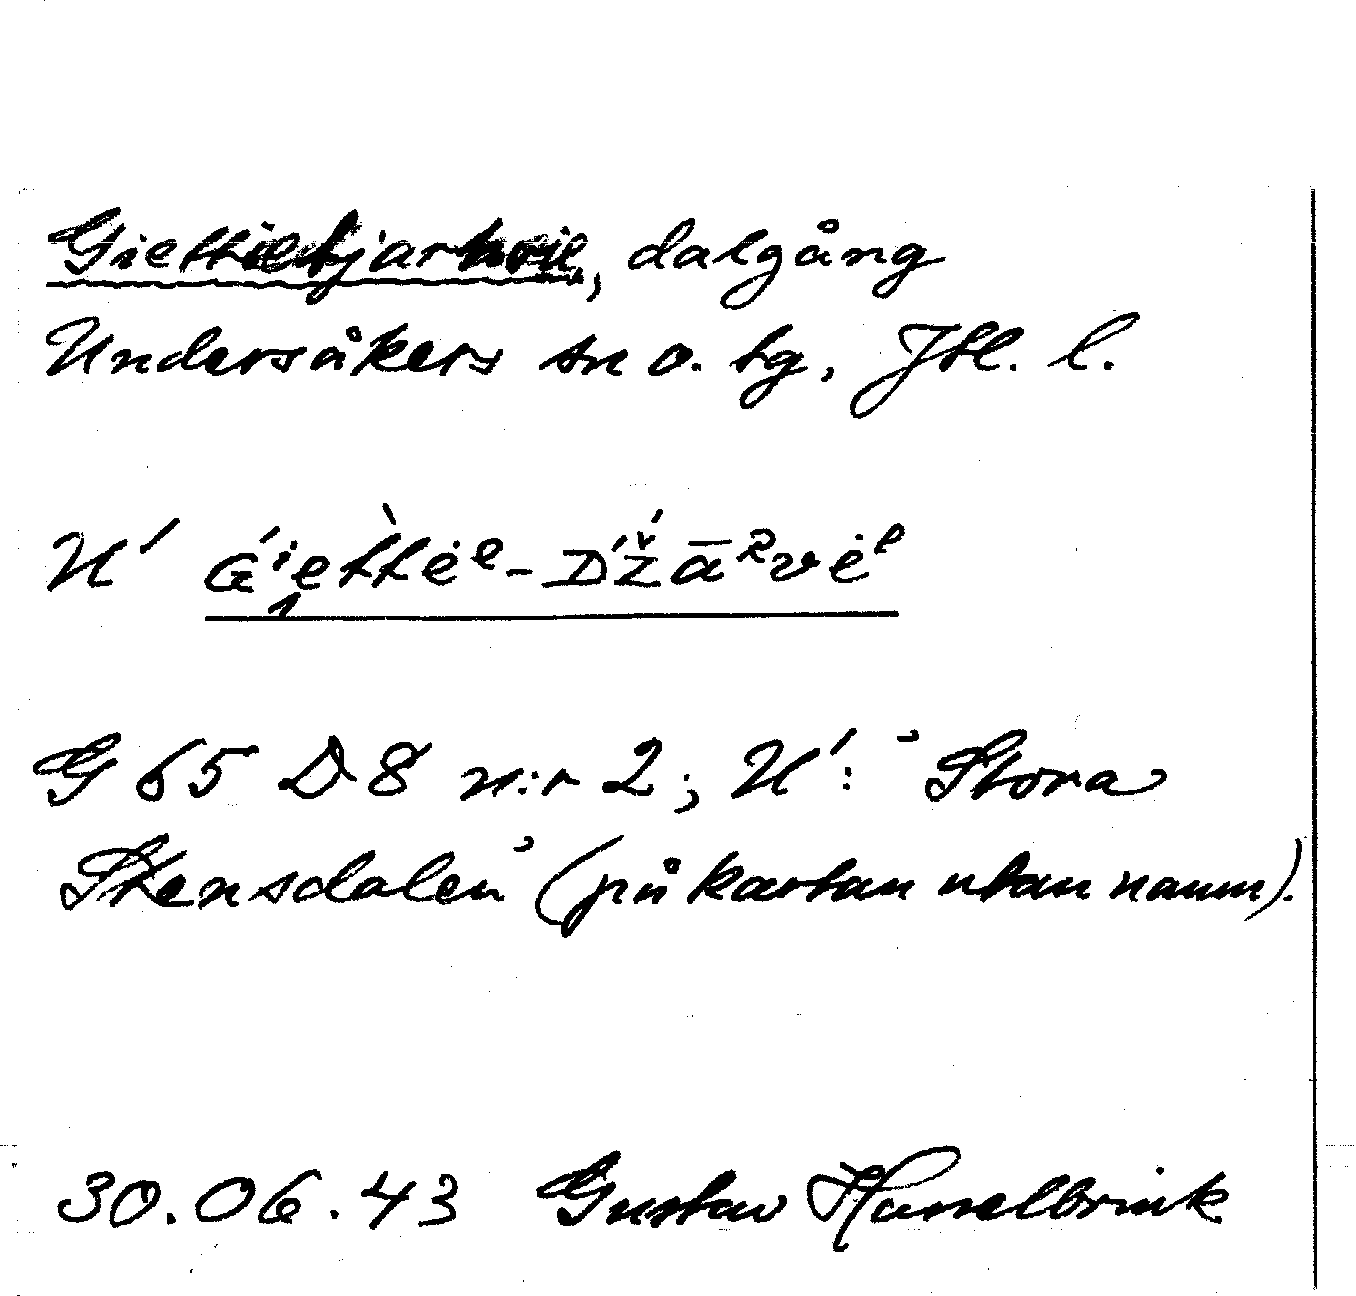 Giettietjarhvie, dalgång
Undersåkers sn o. tg, Jtl. l.
U′
G 65 D 8 n:r 2; U′: ”Stora
Stensdalen” (på kartan utan namn).
30.06.43 Gustav Hasselbrink